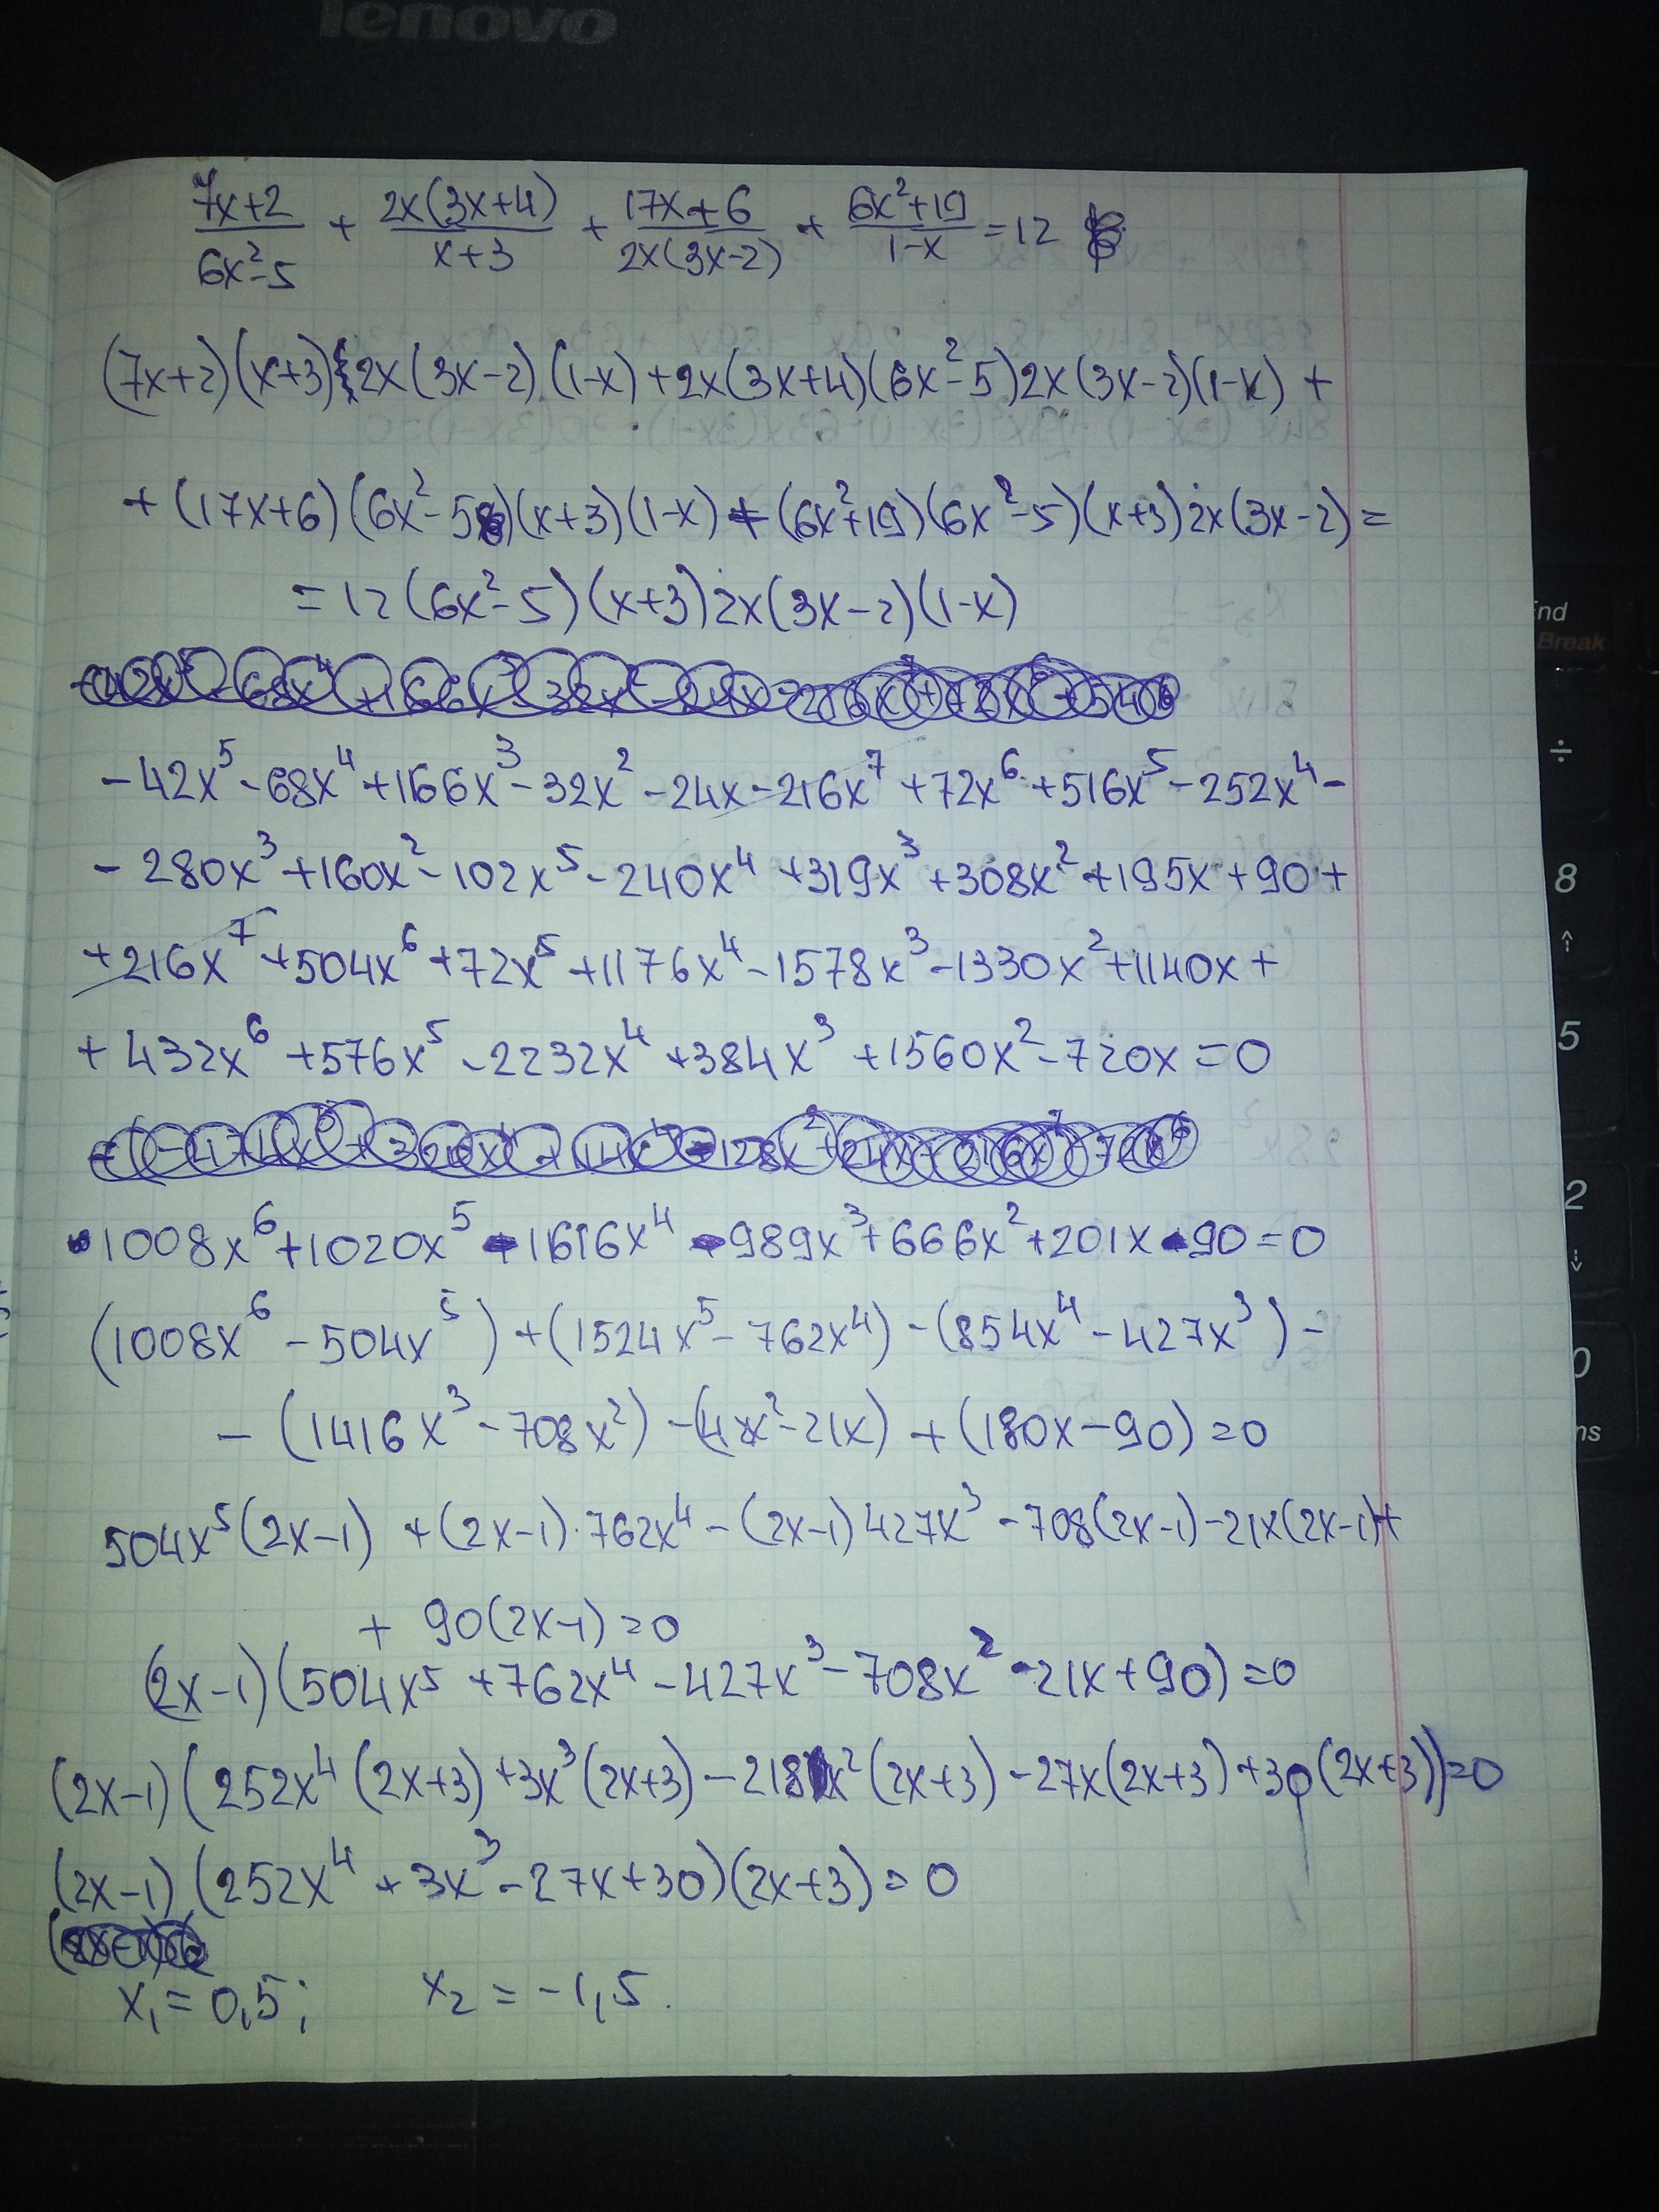 lenovo
(7x+2)/(6x²-5) + (2x(3x+4))/(x+3) + (17x+6)/(2x(3x-2)) + (6x²+19)/(1-x) = 12
(7x+2)(x+3)2x(3x-2)(1-x)+2x(3x+4)(6x²-5)2x(3x-2)(1-x)+
+(17x+6)(6x²-5)(x+3)(1-x)+(6x²+19)(6x²-5)(x+3)2x(3x-2)=
=12(6x²-5)(x+3)2x(3x-2)(1-x)
-42x⁵-68x⁴+166x³-32x²-24x-216x⁷+72x⁶+516x⁵-252x⁴-
-280x³+160x²-102x⁵-240x⁴+319x³+308x²+195x+90+
+216x⁷+504x⁶+72x⁵+1176x⁴-1578x³-1330x²+1140x+
+432x⁶+576x⁵-2232x⁴+384x³+1560x²-720x=0
1008x⁶+1020x⁵-1616x⁴-989x³+666x²+201x-90=0
(1008x⁶-504x⁵)+(1524x⁵-762x⁴)-(854x⁴-427x³)-
-(1416x³-708x²)-(42x²-21x)+(180x-90)=0
504x⁵(2x-1)+(2x-1)·762x⁴-(2x-1)427x³-708(2x-1)-21x(2x-1)+
+90(2x-1)=0
(2x-1)(504x⁵+762x⁴-427x³-708x²-21x+90)=0
(2x-1)(252x⁴(2x+3)+3x³(2x+3)-218x²(2x+3)-27x(2x+3)+30(2x+3))=0
(2x-1)(252x⁴+3x³-27x+30)(2x+3)=0
x₁=0,5; x₂=-1,5.
End
Break
÷
8
5
2
0
ns